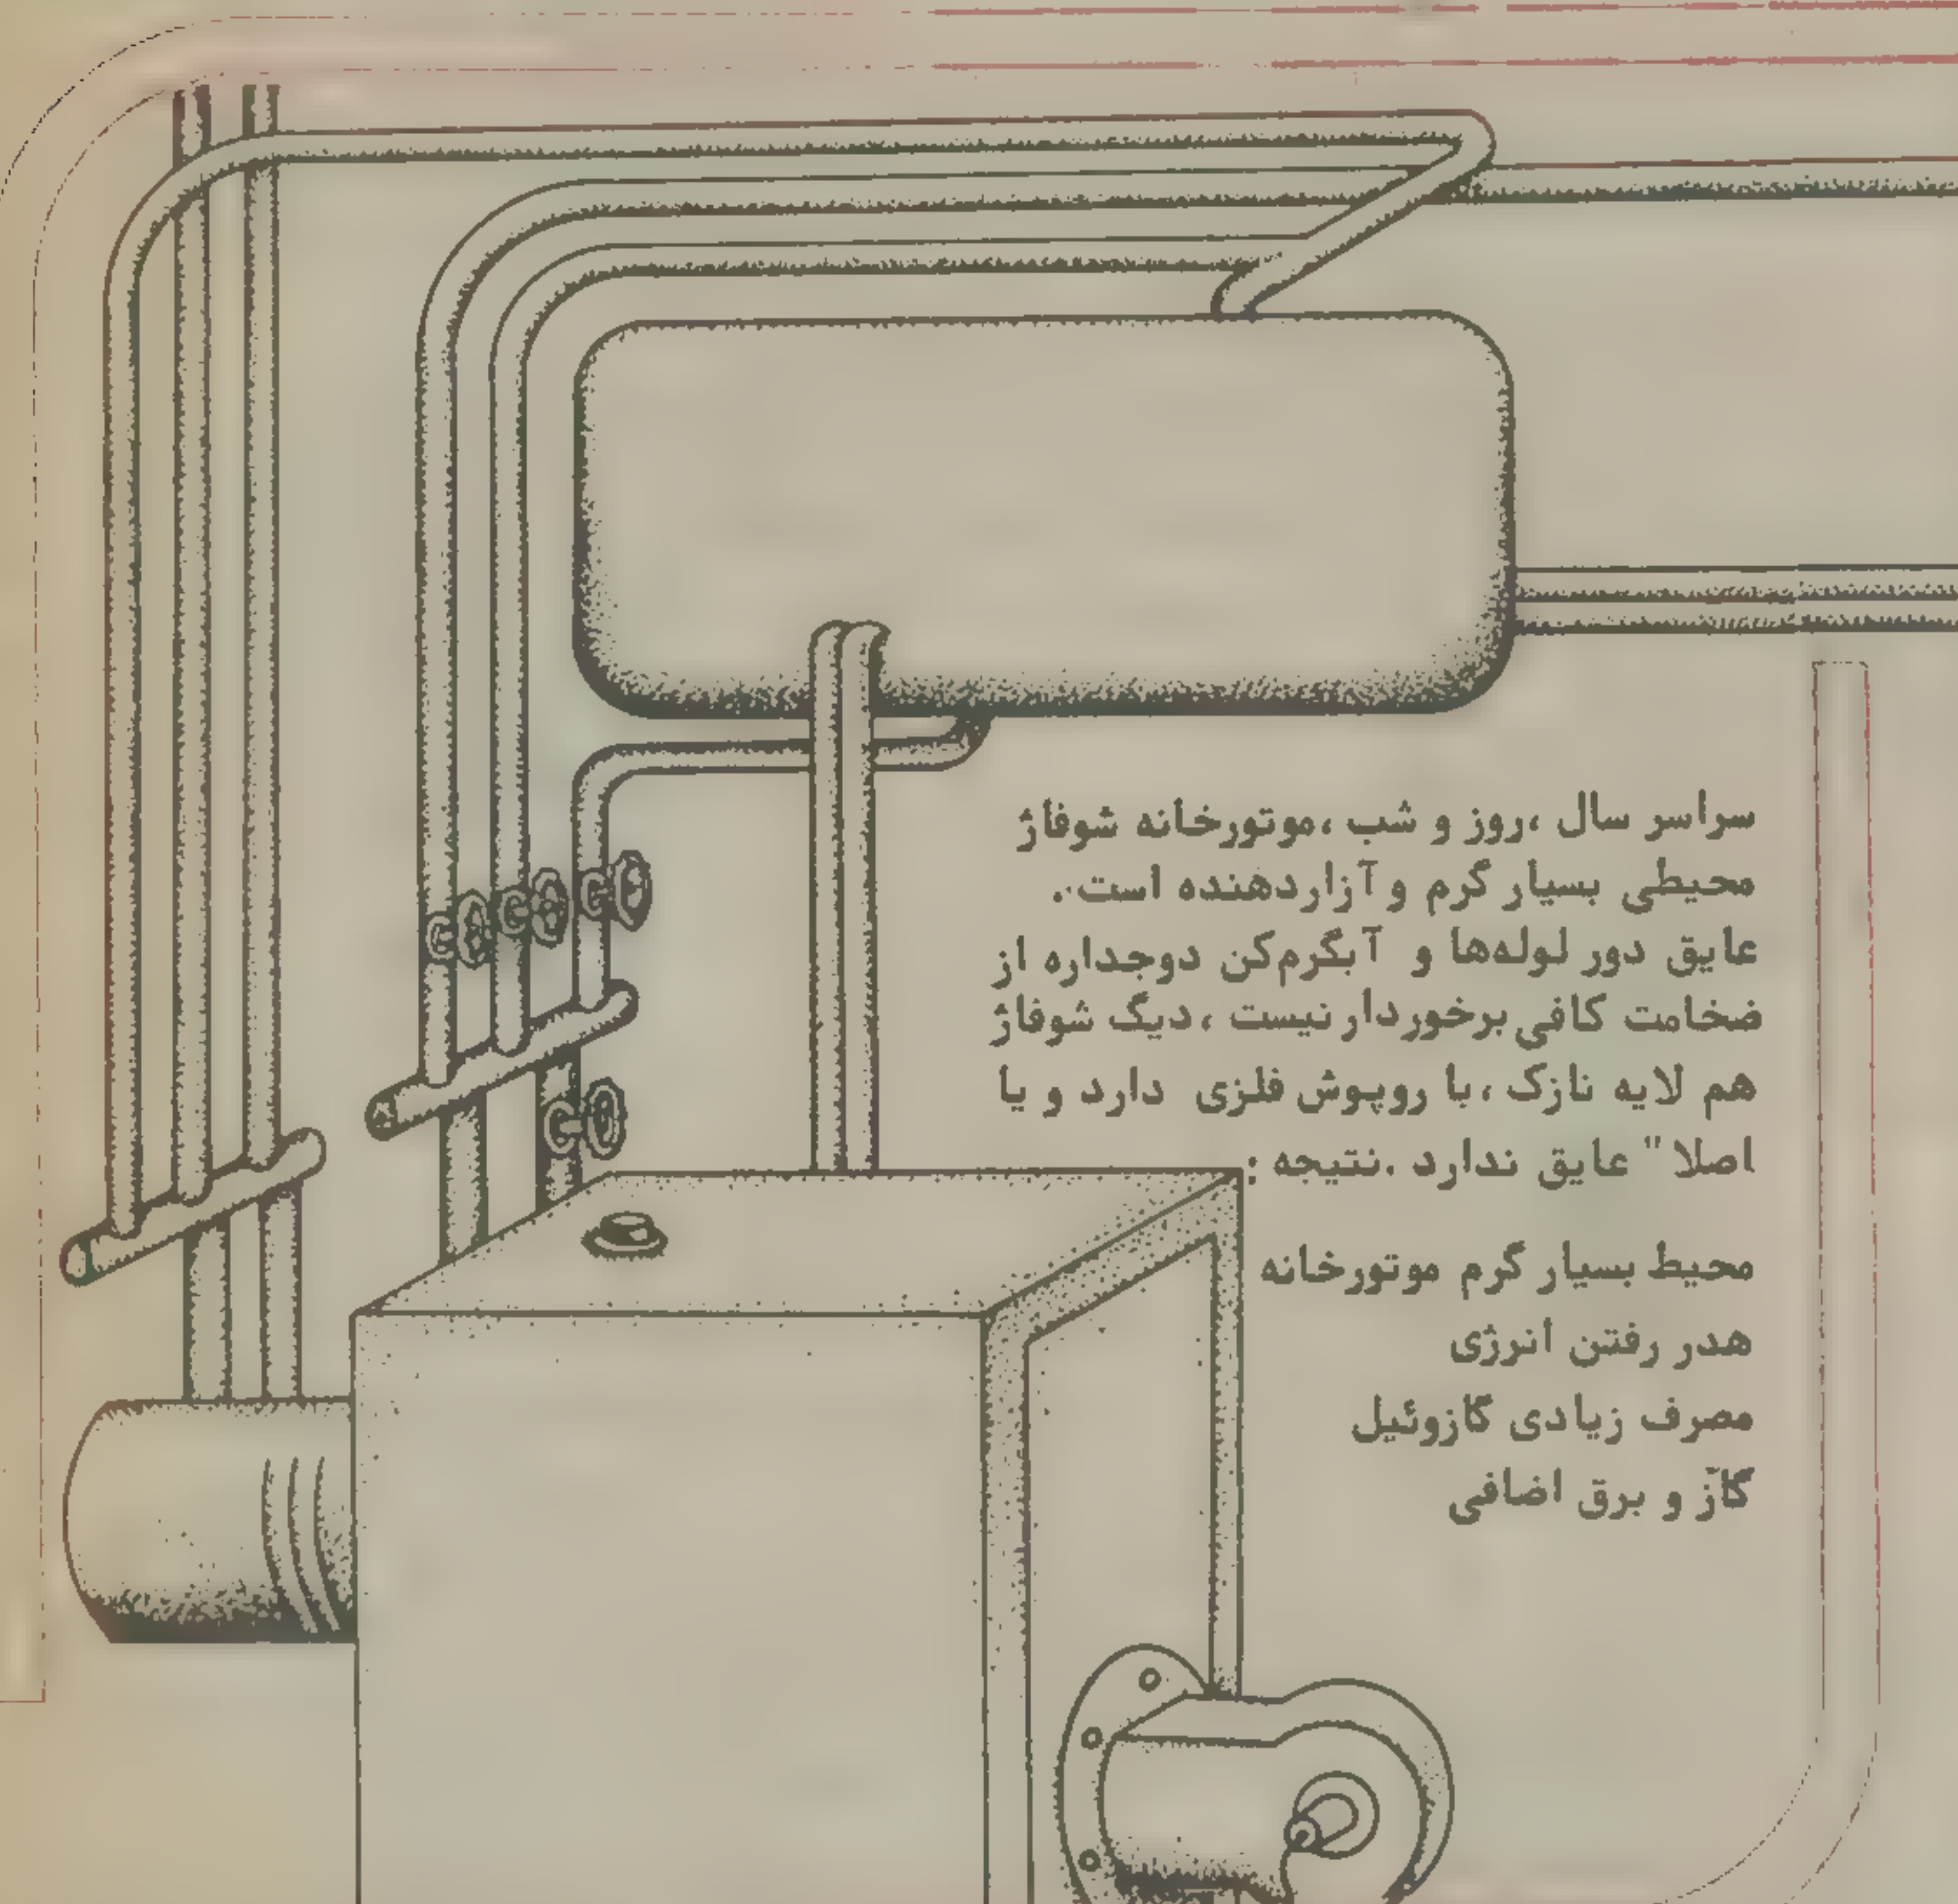 سراسر سال ،روز و شب ،موتورخانه شوفاژ
محیطی بسیار گرم و آزاردهنده است.
عایق دور لوله‌ها و آبگرم‌کن دوجداره از
ضخامت کافی برخوردار نیست ، دیگ شوفاژ
هم لایه نازک ،با روپوش فلزی دارد و یا
اصلا" عایق ندارد .نتیجه :
محیط بسیار گرم موتورخانه
هدر رفتن انرژی
مصرف زیادی گازوئیل
گاز و برق اضافی